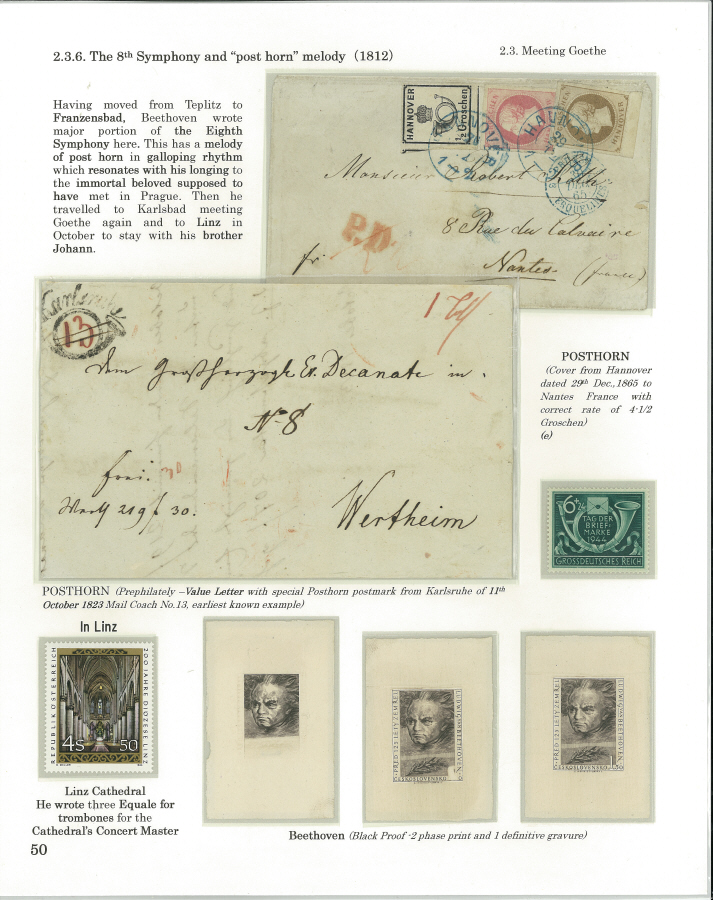 2.3.6. The 8th Symphony and “post horn” melody (1812)
2.3. Meeting Goethe
Having moved from Teplitz to
Franzensbad, Beethoven wrote
major portion of the Eighth
Symphony here. This has a melody
of post horn in galloping rhythm
which resonates with his longing to
the immortal beloved supposed to
have met in Prague. Then he
travelled to Karlsbad meeting
Goethe again and to Linz in
October to stay with his brother
Johann.
HANNOVER
½ Groschen
HANNOVER
Monsieur Robert
8 Rue du Calvaire
fr.
Nantes
(france)
P.D.
Karlsruhe
13
dem Großherzogl. Ev. Decanate in
N. 8
Wertheim
POSTHORN
(Cover from Hannover
dated 29th Dec.,1865 to
Nantes France with
correct rate of 4-1/2
Groschen)
(e)
6+24
TAG DER
BRIEF-
MARKE
1944
GROSSDEUTSCHES REICH
POSTHORN (Prephilately –Value Letter with special Posthorn postmark from Karlsruhe of 11th
October 1823 Mail Coach No.13, earliest known example)
In Linz
REPUBLIK ÖSTERREICH
200 JAHRE DIÖZESE LINZ
4S 50
Linz Cathedral
He wrote three Equale for
trombones for the
Cathedral’s Concert Master
PŘED 125 LETY ZEMŘEL
LUDWIG VAN BEETHOVEN
ČESKOSLOVENSKO
PŘED 125 LETY ZEMŘEL
LUDWIG VAN BEETHOVEN
ČESKOSLOVENSKO
Beethoven (Black Proof -2 phase print and 1 definitive gravure)
50